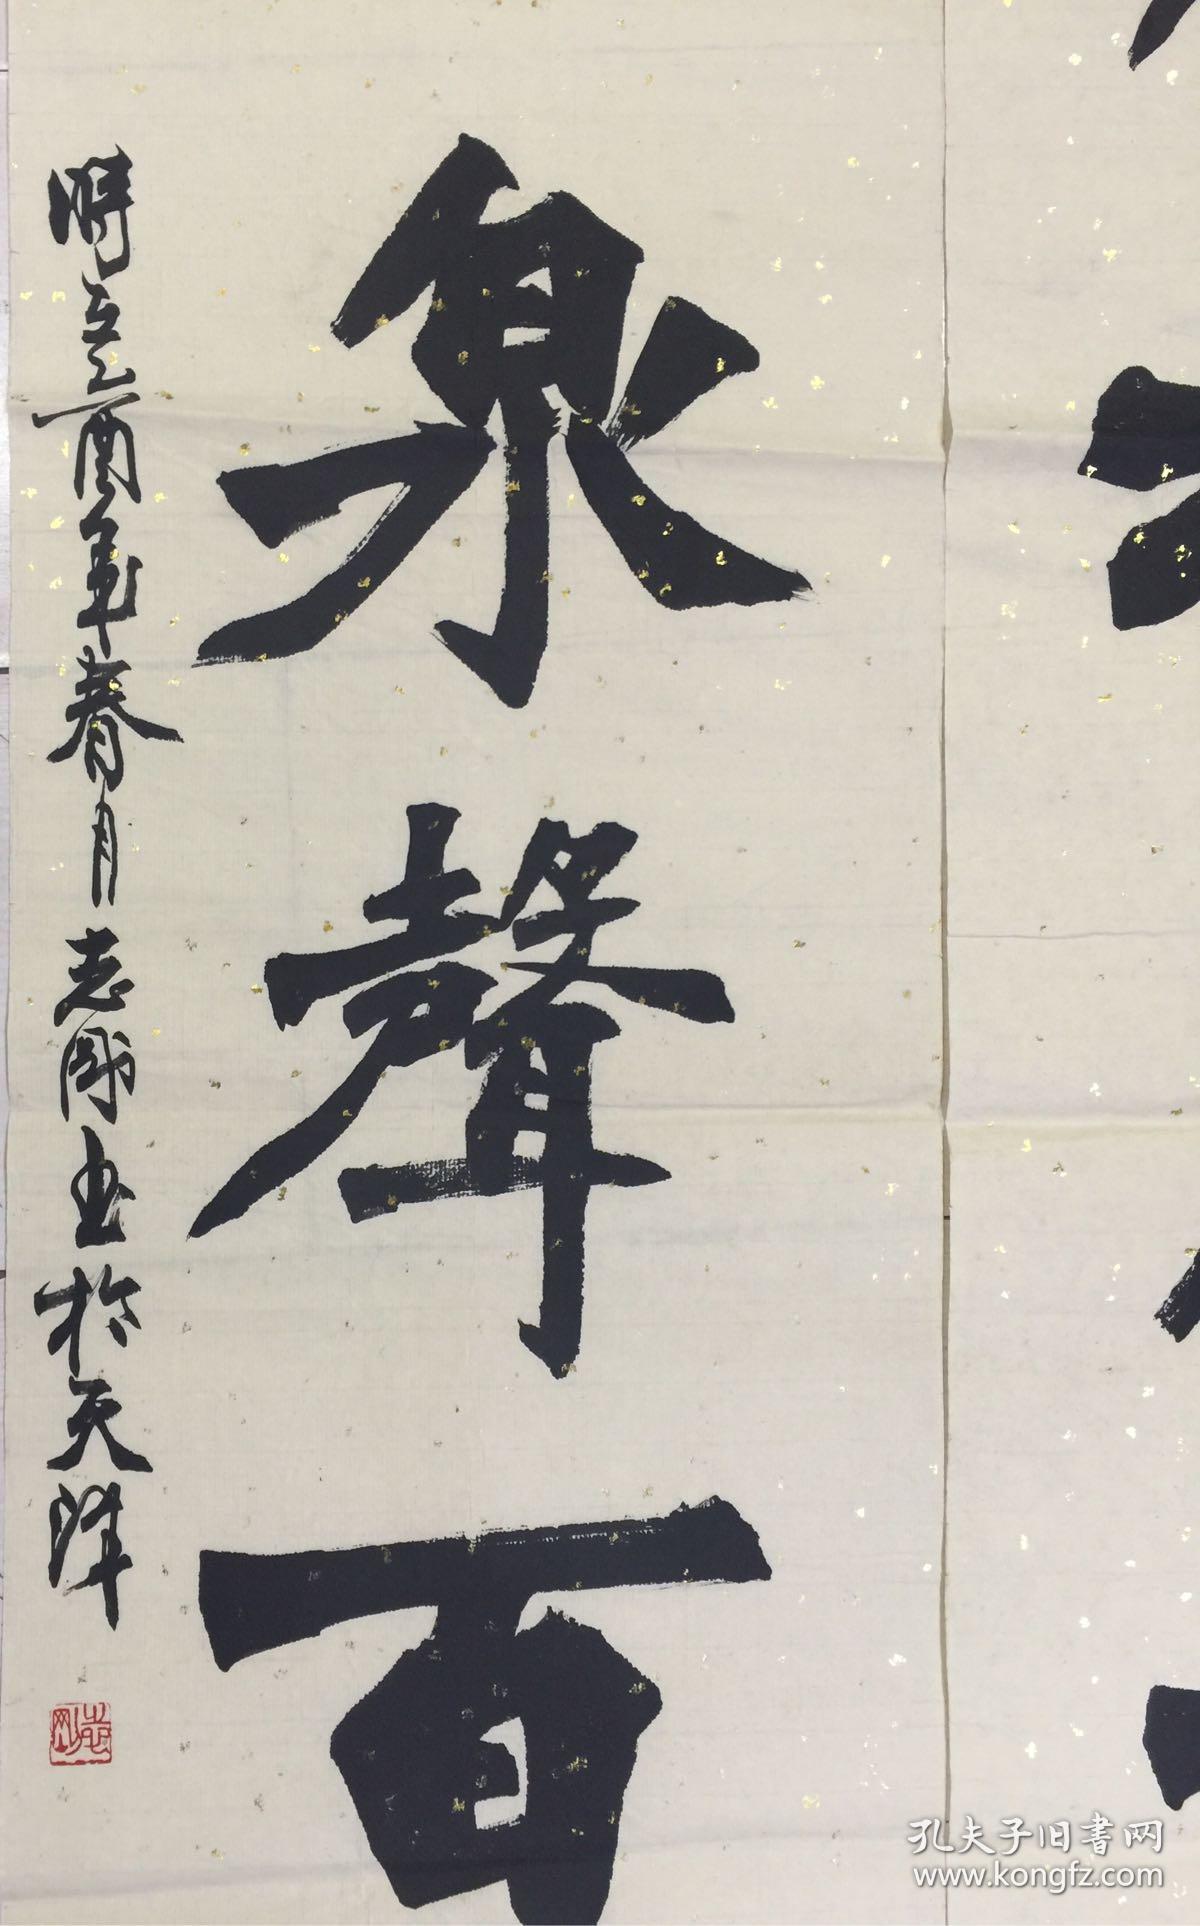 泉聲百
時在乙酉年春月志剛书於天津
志刚
孔夫子旧書网
www.kongfz.com